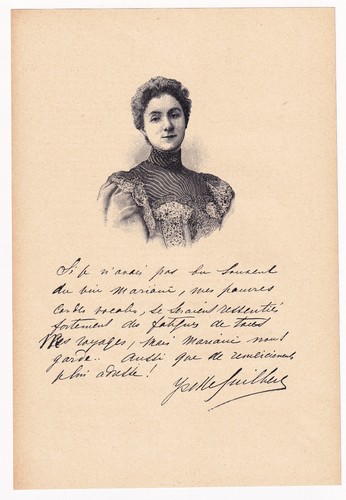 Si je n'avais pas bu souvent
du vin Mariani, mes pauvres
cordes vocales, se seraient ressenties
fortement des fatigues de tous
Mes voyages, mais Mariani nous
garde.. Aussi que de remerciements
plui adresse!
Yvette Guilbert